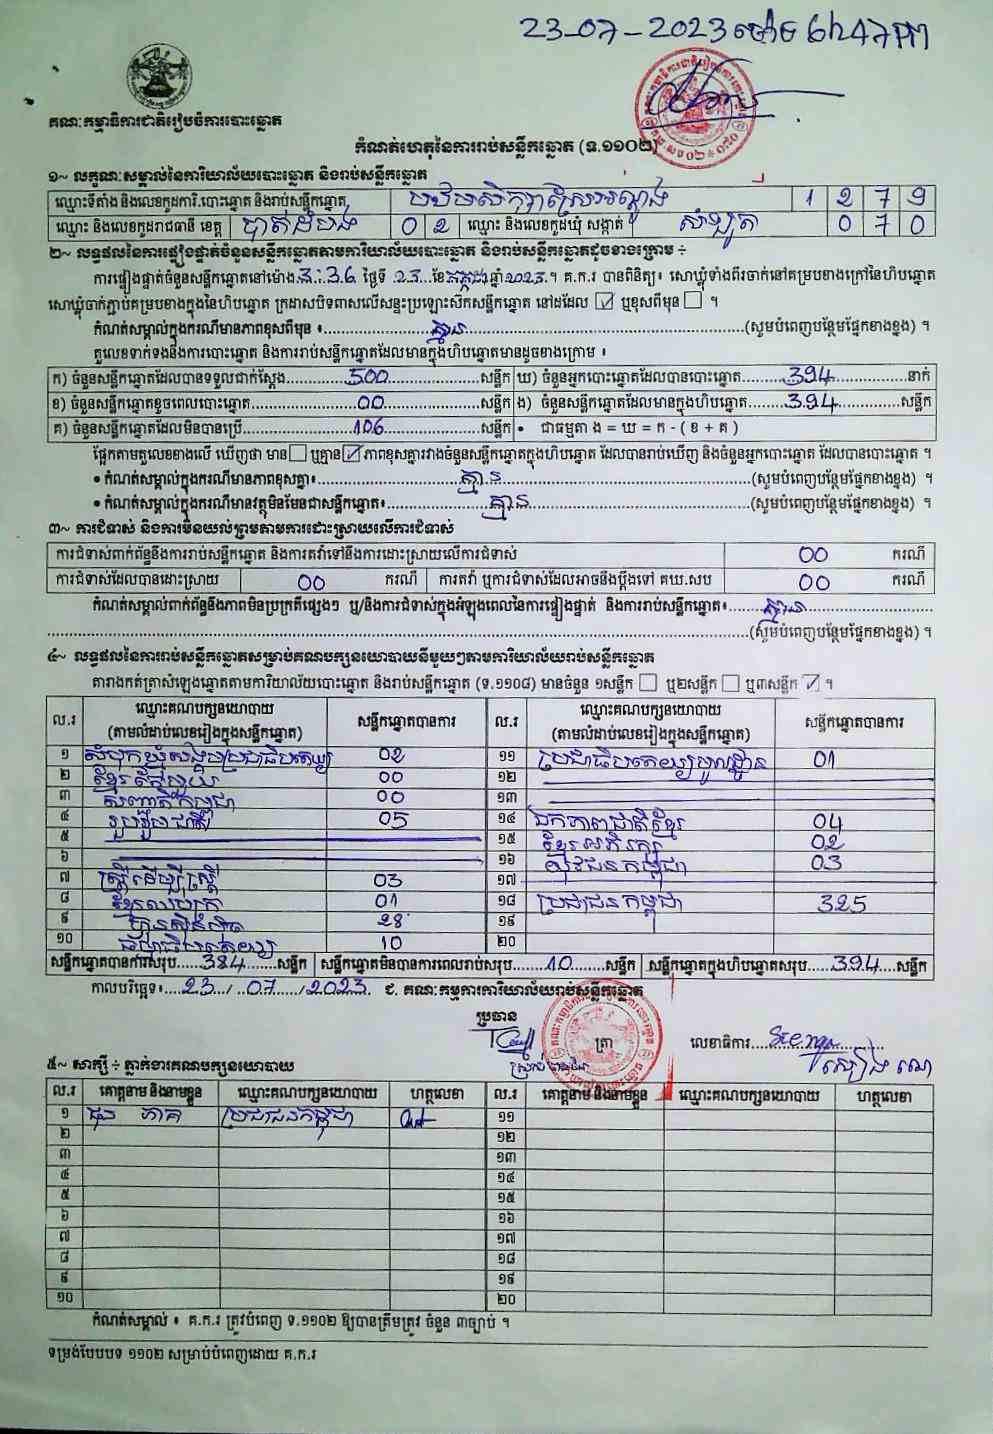 23-07-2023 ម៉ោង 6:247
គណៈកម្មាធិការជាតិរៀបចំការបោះឆ្នោត
កំណត់ហេតុនៃការរាប់សន្លឹកឆ្នោត (ទ.១១០២)
១~ លក្ខណៈសម្គាល់នៃការិយាល័យបោះឆ្នោត និងរាប់សន្លឹកឆ្នោត
ឈ្មោះទីតាំង និងលេខកូដការិ.បោះឆ្នោត និងរាប់សន្លឹកឆ្នោត 1 2 7 9
ឈ្មោះ និងលេខកូដរាជធានី ខេត្ត បាត់ដំបង 0 2 ឈ្មោះ និងលេខកូដឃុំ សង្កាត់ សំឡូត 0 7 0
២~ លទ្ធផលនៃការផ្ទៀងផ្ទាត់ចំនួនសន្លឹកឆ្នោតតាមការិយាល័យបោះឆ្នោត និងរាប់សន្លឹកឆ្នោតដូចខាងក្រោម ÷
ការផ្ទៀងផ្ទាត់ចំនួនសន្លឹកឆ្នោតនៅម៉ោង 3:36 ថ្ងៃទី 23 ខែ កក្កដា ឆ្នាំ 2023 ។ គ.ក.រ បានពិនិត្យ៖ សោឃ្លុំទាំងពីរចាក់នៅគម្របខាងក្រៅនៃហិបឆ្នោត
សោឃ្លុំចាក់ភ្ជាប់គម្របខាងក្នុងនៃហិបឆ្នោត ក្រដាសបិទពាសលើសន្ទះប្រឡោះស៊កសន្លឹកឆ្នោត នៅដដែល ☑ ឬខុសពីមុន ☐ ។
កំណត់សម្គាល់ក្នុងករណីមានភាពខុសពីមុន ៖ គ្មាន (សូមបំពេញបន្ថែមផ្នែកខាងខ្នង) ។
តួលេខទាក់ទងនឹងការបោះឆ្នោត និងការរាប់សន្លឹកឆ្នោតដែលមានក្នុងហិបឆ្នោតមានដូចខាងក្រោម ៖
ក) ចំនួនសន្លឹកឆ្នោតដែលបានទទួលជាក់ស្តែង 500 សន្លឹក ឃ) ចំនួនអ្នកបោះឆ្នោតដែលបានបោះឆ្នោត 394 នាក់
ខ) ចំនួនសន្លឹកឆ្នោតខូចពេលបោះឆ្នោត 00 សន្លឹក ង) ចំនួនសន្លឹកឆ្នោតដែលមានក្នុងហិបឆ្នោត 394 សន្លឹក
គ) ចំនួនសន្លឹកឆ្នោតដែលមិនបានប្រើ 106 សន្លឹក • ជាធម្មតា ង = ឃ = ក - ( ខ + គ )
ផ្អែកតាមតួលេខខាងលើ ឃើញថា មាន ☐ ឬគ្មាន ☑ ភាពខុសគ្នារវាងចំនួនសន្លឹកឆ្នោតក្នុងហិបឆ្នោត ដែលបានរាប់ឃើញ និងចំនួនអ្នកបោះឆ្នោត ដែលបានបោះឆ្នោត ។
• កំណត់សម្គាល់ក្នុងករណីមានភាពខុសគ្នា៖ គ្មាន (សូមបំពេញបន្ថែមផ្នែកខាងខ្នង) ។
• កំណត់សម្គាល់ក្នុងករណីមានវត្ថុមិនមែនជាសន្លឹកឆ្នោត៖ គ្មាន (សូមបំពេញបន្ថែមផ្នែកខាងខ្នង) ។
៣~ ការជំទាស់ និងការមិនយល់ព្រមតាមការដោះស្រាយលើការជំទាស់
ការជំទាស់ពាក់ព័ន្ធនឹងការរាប់សន្លឹកឆ្នោត និងការតវ៉ាទៅនឹងការដោះស្រាយលើការជំទាស់ 00 ករណី
ការជំទាស់ដែលបានដោះស្រាយ 00 ករណី ការតវ៉ា ឬការជំទាស់ដែលអាចនឹងប្តឹងទៅ គឃ.សប 00 ករណី
កំណត់សម្គាល់ពាក់ព័ន្ធនឹងភាពមិនប្រក្រតីផ្សេងៗ ឬ/និងការជំទាស់ក្នុងអំឡុងពេលនៃការផ្ទៀងផ្ទាត់ និងការរាប់សន្លឹកឆ្នោត៖ គ្មាន
(សូមបំពេញបន្ថែមផ្នែកខាងខ្នង) ។
៤~ លទ្ធផលនៃការរាប់សន្លឹកឆ្នោតសម្រាប់គណបក្សនយោបាយនីមួយៗតាមការិយាល័យរាប់សន្លឹកឆ្នោត
តារាងកត់ត្រាសំឡេងឆ្នោតតាមការិយាល័យបោះឆ្នោត និងរាប់សន្លឹកឆ្នោត (ទ.១១០៨) មានចំនួន ១សន្លឹក ☐ ឬ២សន្លឹក ☐ ឬ៣សន្លឹក ☑ ។
ល.រ ឈ្មោះគណបក្សនយោបាយ សន្លឹកឆ្នោតបានការ ល.រ ឈ្មោះគណបក្សនយោបាយ សន្លឹកឆ្នោតបានការ
(តាមលំដាប់លេខរៀងក្នុងសន្លឹកឆ្នោត) (តាមលំដាប់លេខរៀងក្នុងសន្លឹកឆ្នោត)
១ សំបុកឃ្មុំសង្គមប្រជាធិបតេយ្យ 02 ១១ ប្រជាធិបតេយ្យមូលដ្ឋាន 01
២ ខ្មែរតែមួយ 00 ១២
៣ សញ្ជាតិកម្ពុជា 00 ១៣
៤ ខ្មែរ 05 ១៤ ឯកភាពជាតិខ្មែរ 04
៥ ១៥ ខ្មែរអភិរក្ស 02
៦ ១៦ យុវជនកម្ពុជា 03
៧ ស្ត្រីដើម្បីស្ត្រី 03 ១៧
៨ 01 ១៨ ប្រជាជនកម្ពុជា 325
៩ ហ្វ៊ុនស៊ិនប៉ិច 28 ១៩
១០ ធម្មាធិបតេយ្យ 10 ២០
សន្លឹកឆ្នោតបានការសរុប 384 សន្លឹក សន្លឹកឆ្នោតមិនបានការពេលរាប់សរុប 10 សន្លឹក សន្លឹកឆ្នោតក្នុងហិបឆ្នោតសរុប 394 សន្លឹក
កាលបរិច្ឆេទ៖ 23 / 07 / 2023 ជ. គណៈកម្មការការិយាល័យរាប់សន្លឹកឆ្នោត
ប្រធាន
ត្រា លេខាធិការ
៥~ សាក្សី ÷ ភ្នាក់ងារគណបក្សនយោបាយ
ល.រ គោត្តនាម និងនាមខ្លួន ឈ្មោះគណបក្សនយោបាយ ហត្ថលេខា ល.រ គោត្តនាម និងនាមខ្លួន ឈ្មោះគណបក្សនយោបាយ ហត្ថលេខា
១ ប្រជាជនកម្ពុជា ១១
២ ១២
៣ ១៣
៤ ១៤
៥ ១៥
៦ ១៦
៧ ១៧
៨ ១៨
៩ ១៩
១០ ២០
កំណត់សម្គាល់ ៖ គ.ក.រ ត្រូវបំពេញ ទ.១១០២ ឱ្យបានត្រឹមត្រូវ ចំនួន ៣ច្បាប់ ។
ទម្រង់បែបបទ ១១០២ សម្រាប់បំពេញដោយ គ.ក.រ